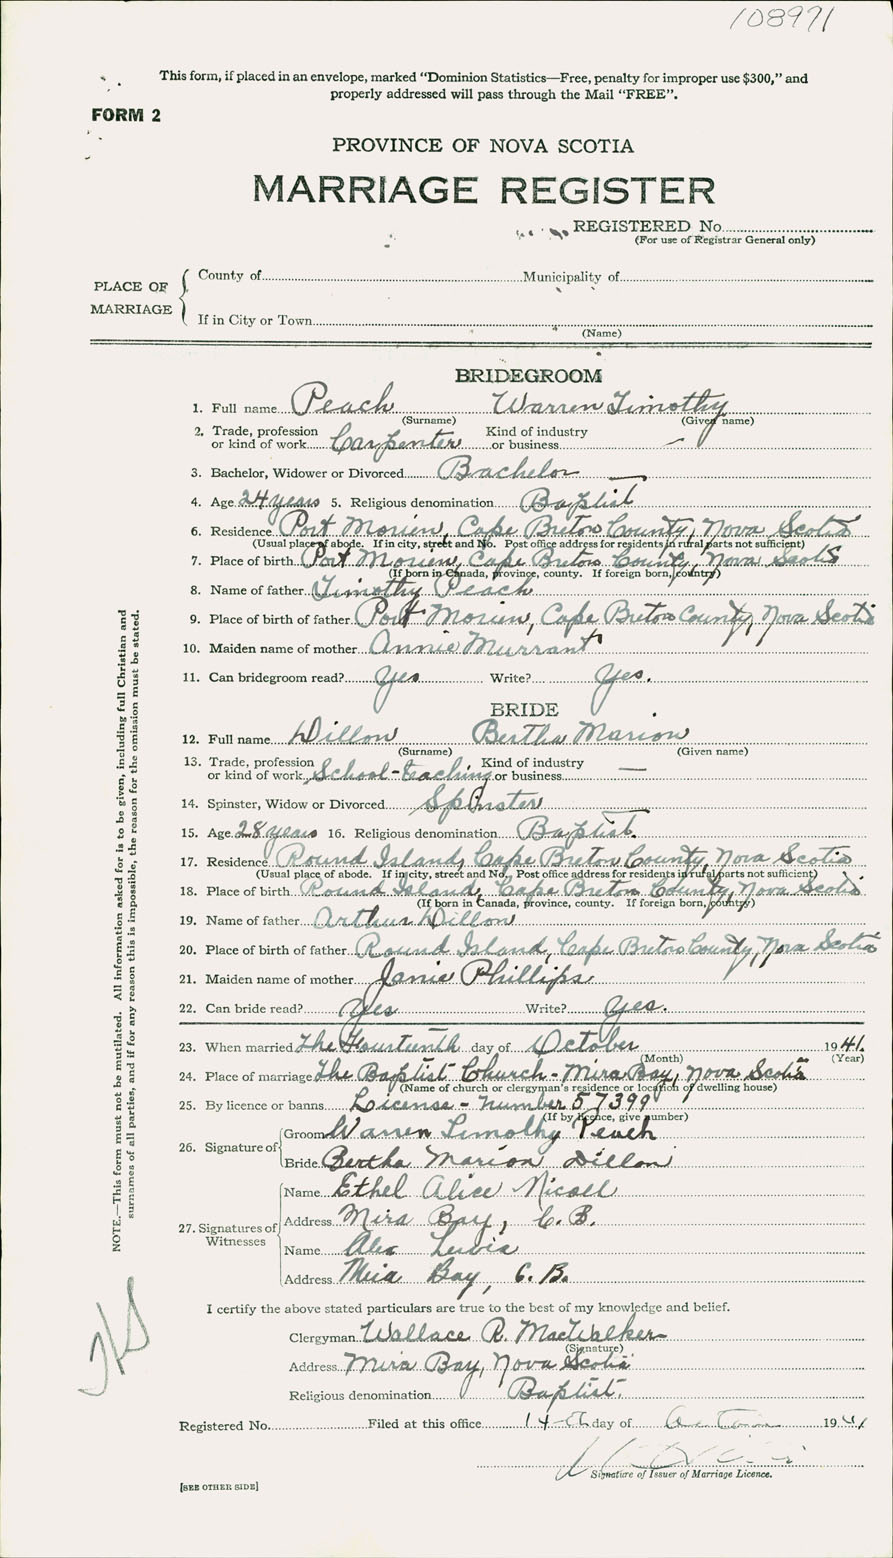 108971
This form, if placed in an envelope, marked "Dominion Statistics—Free, penalty for improper use $300," and
properly addressed will pass through the Mail "FREE".
FORM 2
PROVINCE OF NOVA SCOTIA
MARRIAGE REGISTER
REGISTERED No.
(For use of Registrar General only)
PLACE OF MARRIAGE
County of Municipality of
If in City or Town
(Name)
BRIDEGROOM
1. Full name Peach Warren Timothy
(Surname) (Given name)
2. Trade, profession or kind of work Carpenter Kind of industry or business —
3. Bachelor, Widower or Divorced Bachelor
4. Age 24 years 5. Religious denomination Baptist
6. Residence Port Morien, Cape Breton County, Nova Scotia
(Usual place of abode. If in city, street and No. Post office address for residents in rural parts not sufficient)
7. Place of birth Port Morien, Cape Breton County, Nova Scotia
(If born in Canada, province, county. If foreign born, country)
8. Name of father Timothy Peach
9. Place of birth of father Port Morien, Cape Breton County, Nova Scotia
10. Maiden name of mother Annie Murrant
11. Can bridegroom read? Yes Write? Yes.
BRIDE
12. Full name Dillon Bertha Marion
(Surname) (Given name)
13. Trade, profession or kind of work School-teaching Kind of industry or business —
14. Spinster, Widow or Divorced Spinster
15. Age 28 years 16. Religious denomination Baptist.
17. Residence Round Island, Cape Breton County, Nova Scotia
(Usual place of abode. If in city, street and No. Post office address for residents in rural parts not sufficient)
18. Place of birth Round Island, Cape Breton County, Nova Scotia
(If born in Canada, province, county. If foreign born, country)
19. Name of father Arthur Dillon
20. Place of birth of father Round Island, Cape Breton County, Nova Scotia
21. Maiden name of mother Janie Phillips
22. Can bride read? Yes Write? Yes.
23. When married The Fourteenth day of October 1941.
(Month) (Year)
24. Place of marriage The Baptist Church - Mira Bay, Nova Scotia
(Name of church or clergyman's residence or location of dwelling house)
25. By licence or banns License - number 57399
(If by licence, give number)
26. Signature of
Groom Warren Timothy Peach
Bride Bertha Marion Dillon
27. Signatures of Witnesses
Name Ethel Alice Nicoll
Address Mira Bay, C.B.
Name Alex Lewis
Address Mira Bay, C.B.
I certify the above stated particulars are true to the best of my knowledge and belief.
Clergyman Wallace R. MacWalker
(Signature)
Address Mira Bay, Nova Scotia
Religious denomination Baptist.
Registered No. Filed at this office 14th day of 1941
Signature of Issuer of Marriage Licence.
[SEE OTHER SIDE]
NOTE.—This form must not be mutilated. All information asked for is to be given, including full Christian and
surnames of all parties, and if for any reason this is impossible, the reason for the omission must be stated.